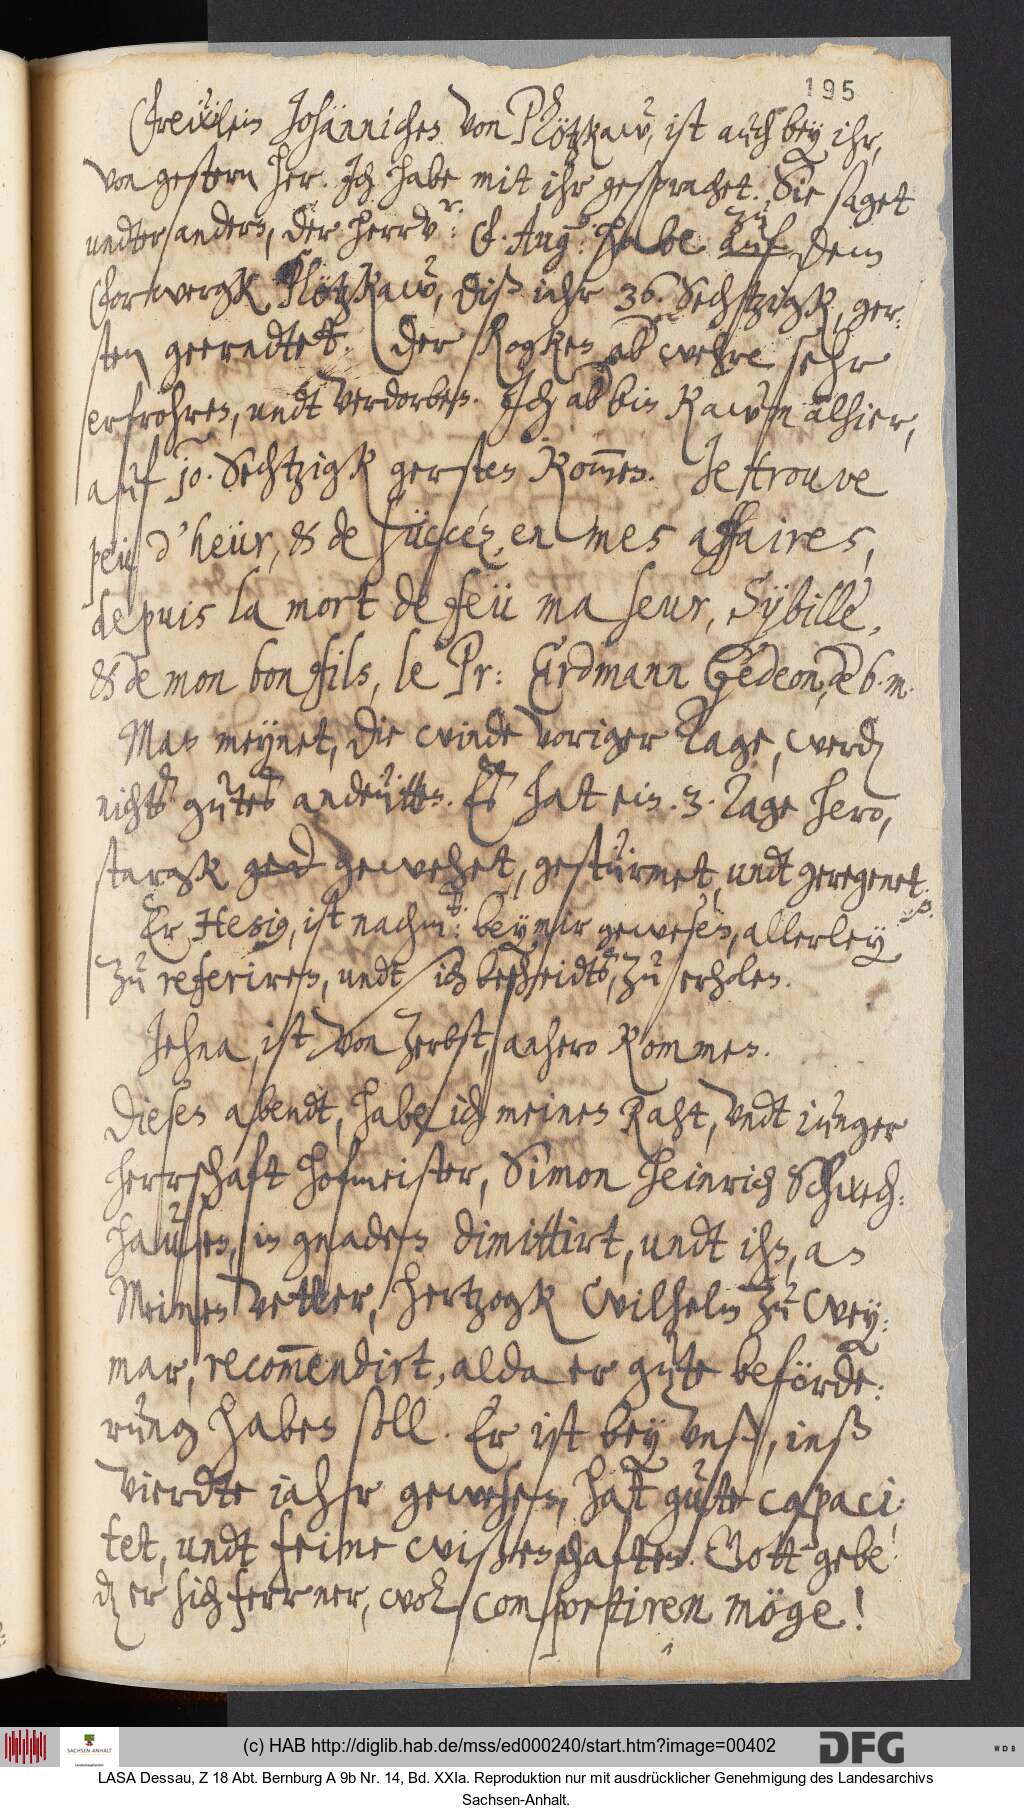 195
Freẅlein Johänniches von Plötzkaw, ist auch bey ihr,
von gestern her. Ich habe mit ihr gesprachet. Sie saget
undter anders, der herr vr: F. Aug: habe auf zu dem
Forwergk Plötzkaw, diß iahr 36. Sechtzigk, ger¬
sten geerndtet. Der Rogken aber wehre sehr
erfrohren, undt verdorben. Ich aber bin kaum alhier,
auf 10. Sechtzigk gersten kommen. Je trouve
peü d'heür, & de süccéz, en mes affaires,
depuis la mort de feü ma seur, Sÿbille,
& de mon bon fils, le Pr: Erdmann Gédeon, de b. m.
Man meynet, die winde voriger Tage, werden
nichts gutes andeütten. Es hat ein. 3. Tage hero,
stargk ged gewehet, gestürmet, undt geregenet.
Er Hesius, ist nachmittags: bey mir gewesen, allerley
zu referiren, undt sich bescheidts, zu erholen.
Jehna, ist von Zerbst, anhero kommen.
Diesen abendt, habe ich meinen Raht, vndt iunger
herrschaft hofmeister, Simon Heinrich Schwech¬
hausen, in gnaden dimittirt, undt ihn, an
Meinen vetter, hertzogk Wilhelm zu Wey¬
mar, recommendirt, alda er gute beförde¬
rung haben soll. Er ist bey vnß, inß
vierdte iahr gewesen, hat gute capaci¬
tet, undt feine wißenschaften. Gott gebe
daß er sich ferrner, wol comportiren möge!
(c) HAB http://diglib.hab.de/mss/ed000240/start.htm?image=00402
SACHSEN-ANHALT
DFG
WDB
LASA Dessau, Z 18 Abt. Bernburg A 9b Nr. 14, Bd. XXIa. Reproduktion nur mit ausdrücklicher Genehmigung des Landesarchivs
Sachsen-Anhalt.